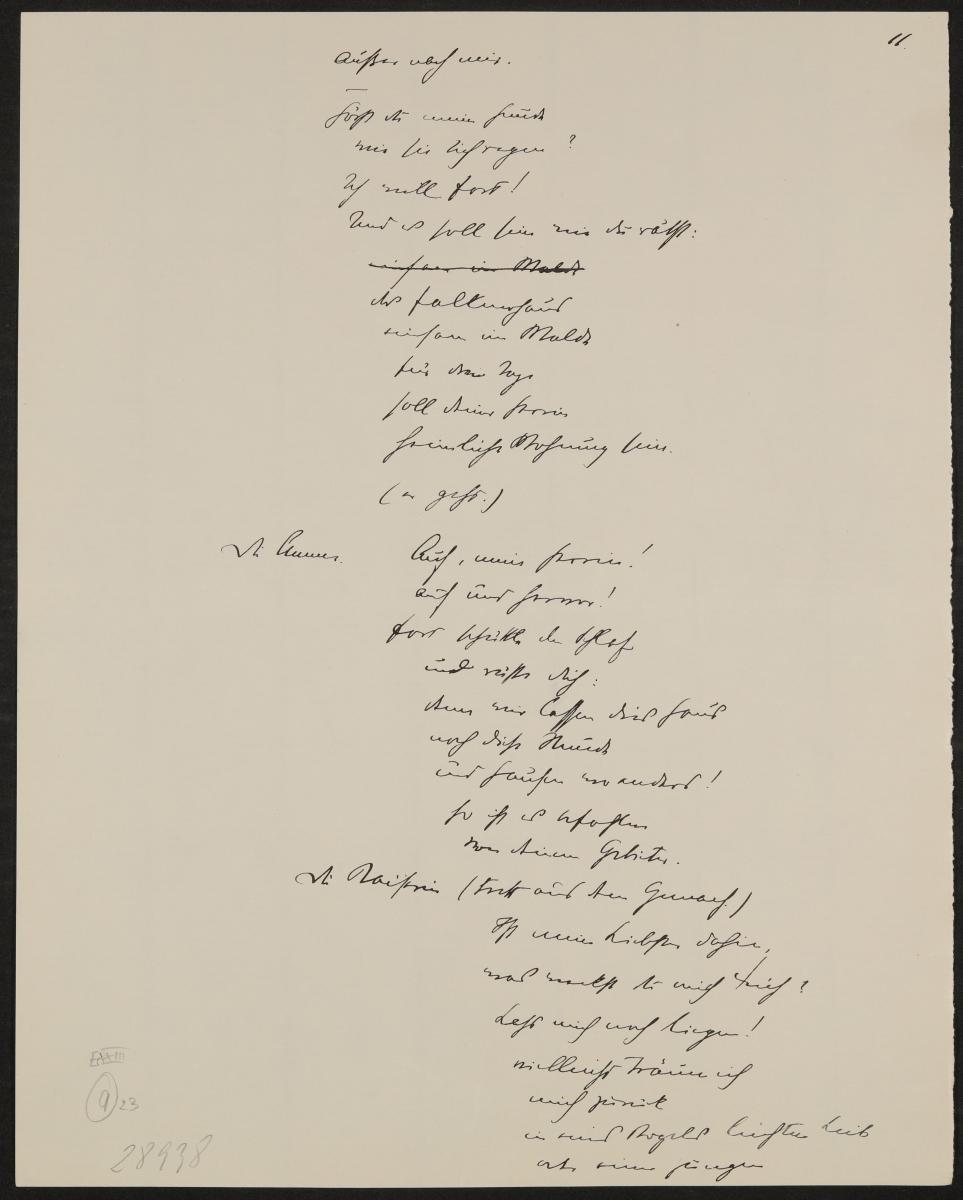 11.
außer nach mir.
Hörst du meine Hunde
wie sie sich regen?
Ich will fort!
Und es soll sein wie du räthst:
einsam im Walde
das Falknerhaus
einsam im Walde
für drei Tage
soll deiner Herrin
heimliche Wohnung sein.
(er geht.)
Die Amme. Auf, meine Herrin!
auf und hervor!
Fort schüttle den Schlaf
und rüste dich:
denn wir lassen dies Haus
noch diese Stunde
und hausen wo anders!
So ist es befohlen
von deinem Gebieter.
Die Kaiserin (tritt aus dem Gemach.)
Ist mein Liebster dahin,
was weckst du mich früh?
Lass mich noch liegen!
vielleicht träum ich
mich zurück
in eines Vogels leichten Leib
oder einer jungen
9 23
28938